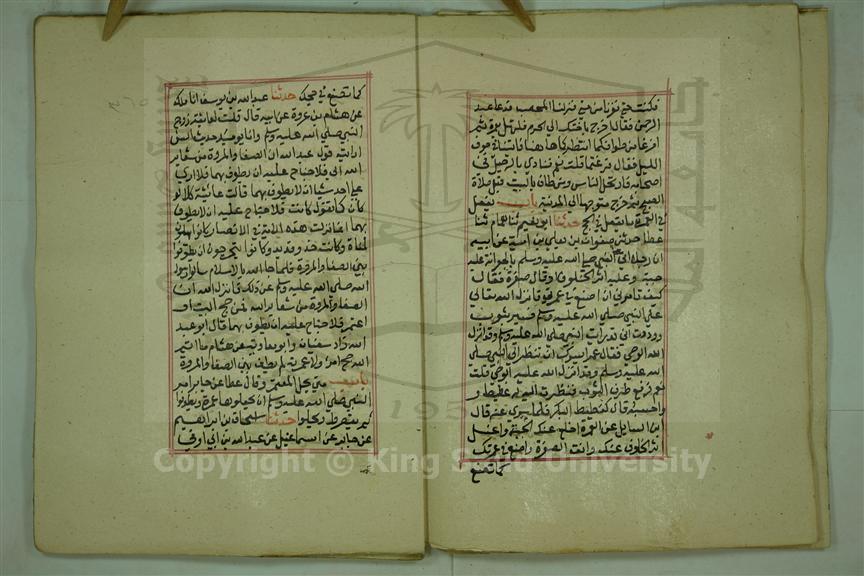 فكنت حتى نفرنا من منى فنزلنا المحصب فدعا عبد
الرحمن فقال اخرج باختك الى الحرم فلتهل بعمرة ثم
افرغا من طوافكما انتظركما ها هنا فاتينا في جوف
الليل فقال فرغتما قلت نعم فنادى بالرحيل في
اصحابه فارتحل الناس ومن طاف بالبيت قبل صلاة
الصبح ثم خرج متوجها الى المدينة باب يفعل
في العمرة ما يفعل في الحج حدثنا ابو نعيم ثنا همام ثنا
عطا حدثني صفوان بن يعلى بن امية عن ابيه
ان رجلا اتى النبي صلى الله عليه وسلم بالجعرانة عليه
جبة وعليه اثر الخلوق او قال صفرة فقال
كيف تامرني ان اصنع في عمرتي فانزل الله تعالى
على النبي صلى الله عليه وسلم فستر بثوب
ووددت اني قد رايت النبي صلى الله عليه وسلم وقد انزل
الله الوحي فقال عمر ايسرك ان تنظر الى النبي صلى
الله عليه وسلم وقد انزل الله عليه الوحي قلت
نعم فرفع طرف الثوب فنظرت اليه له غطيط و
واحسبه قال كغطيط البكر فلما سري عنه قال
اين السايل عن العمرة اخلع عنك الجبة واغسل
اثر الخلوق عنك وانق الصفرة واصنع في عمرتك
كما تصنع
كما تصنع في حجك حدثنا عبد الله بن يوسف انا مالك
عن هشام بن عروة عن ابيه قال قلت لعائشة زوج
النبي صلى الله عليه وسلم وانا يومئذ حديث السن
ارايت قول عبد الله ان الصفا والمروة من شعاير
الله الى فلا جناح عليه ان يطوف بهما فلا ارى
على احد شيا ان لا يطوف بهما قالت عائشة كلا لو
كان كما تقول كانت فلا جناح عليه ان لا يطوف
بهما انما نزلت هذه الاية في الانصار كانوا يهلون
لمناة وكانت حذو قديد وكانوا يتحرجون ان يطوفوا
بين الصفا والمروة فلما جا الله بالاسلام سالوا رسول
الله صلى الله عليه وسلم عن ذلك فانزل الله ان
الصفا والمروة من شعاير الله فمن حج البيت او
اعتمر فلا جناح عليه ان يطوف بهما قال ابو عبد
الله زاد سفيان وابو معاوية عن هشام ما اتم
الله حج امرئ ولا عمرته لم يطف بين الصفا والمروة
باب متى يحل المعتمر وقال عطا عن جابر امر
النبي صلى الله عليه وسلم ان يجعلوها عمرة ويطوفوا
ثم يقصروا ويحلوا حدثنا اسحاق بن ابراهيم
عن جابر عن اسماعيل عن عبد الله بن ابي اوفى
Copyright © King Saud University